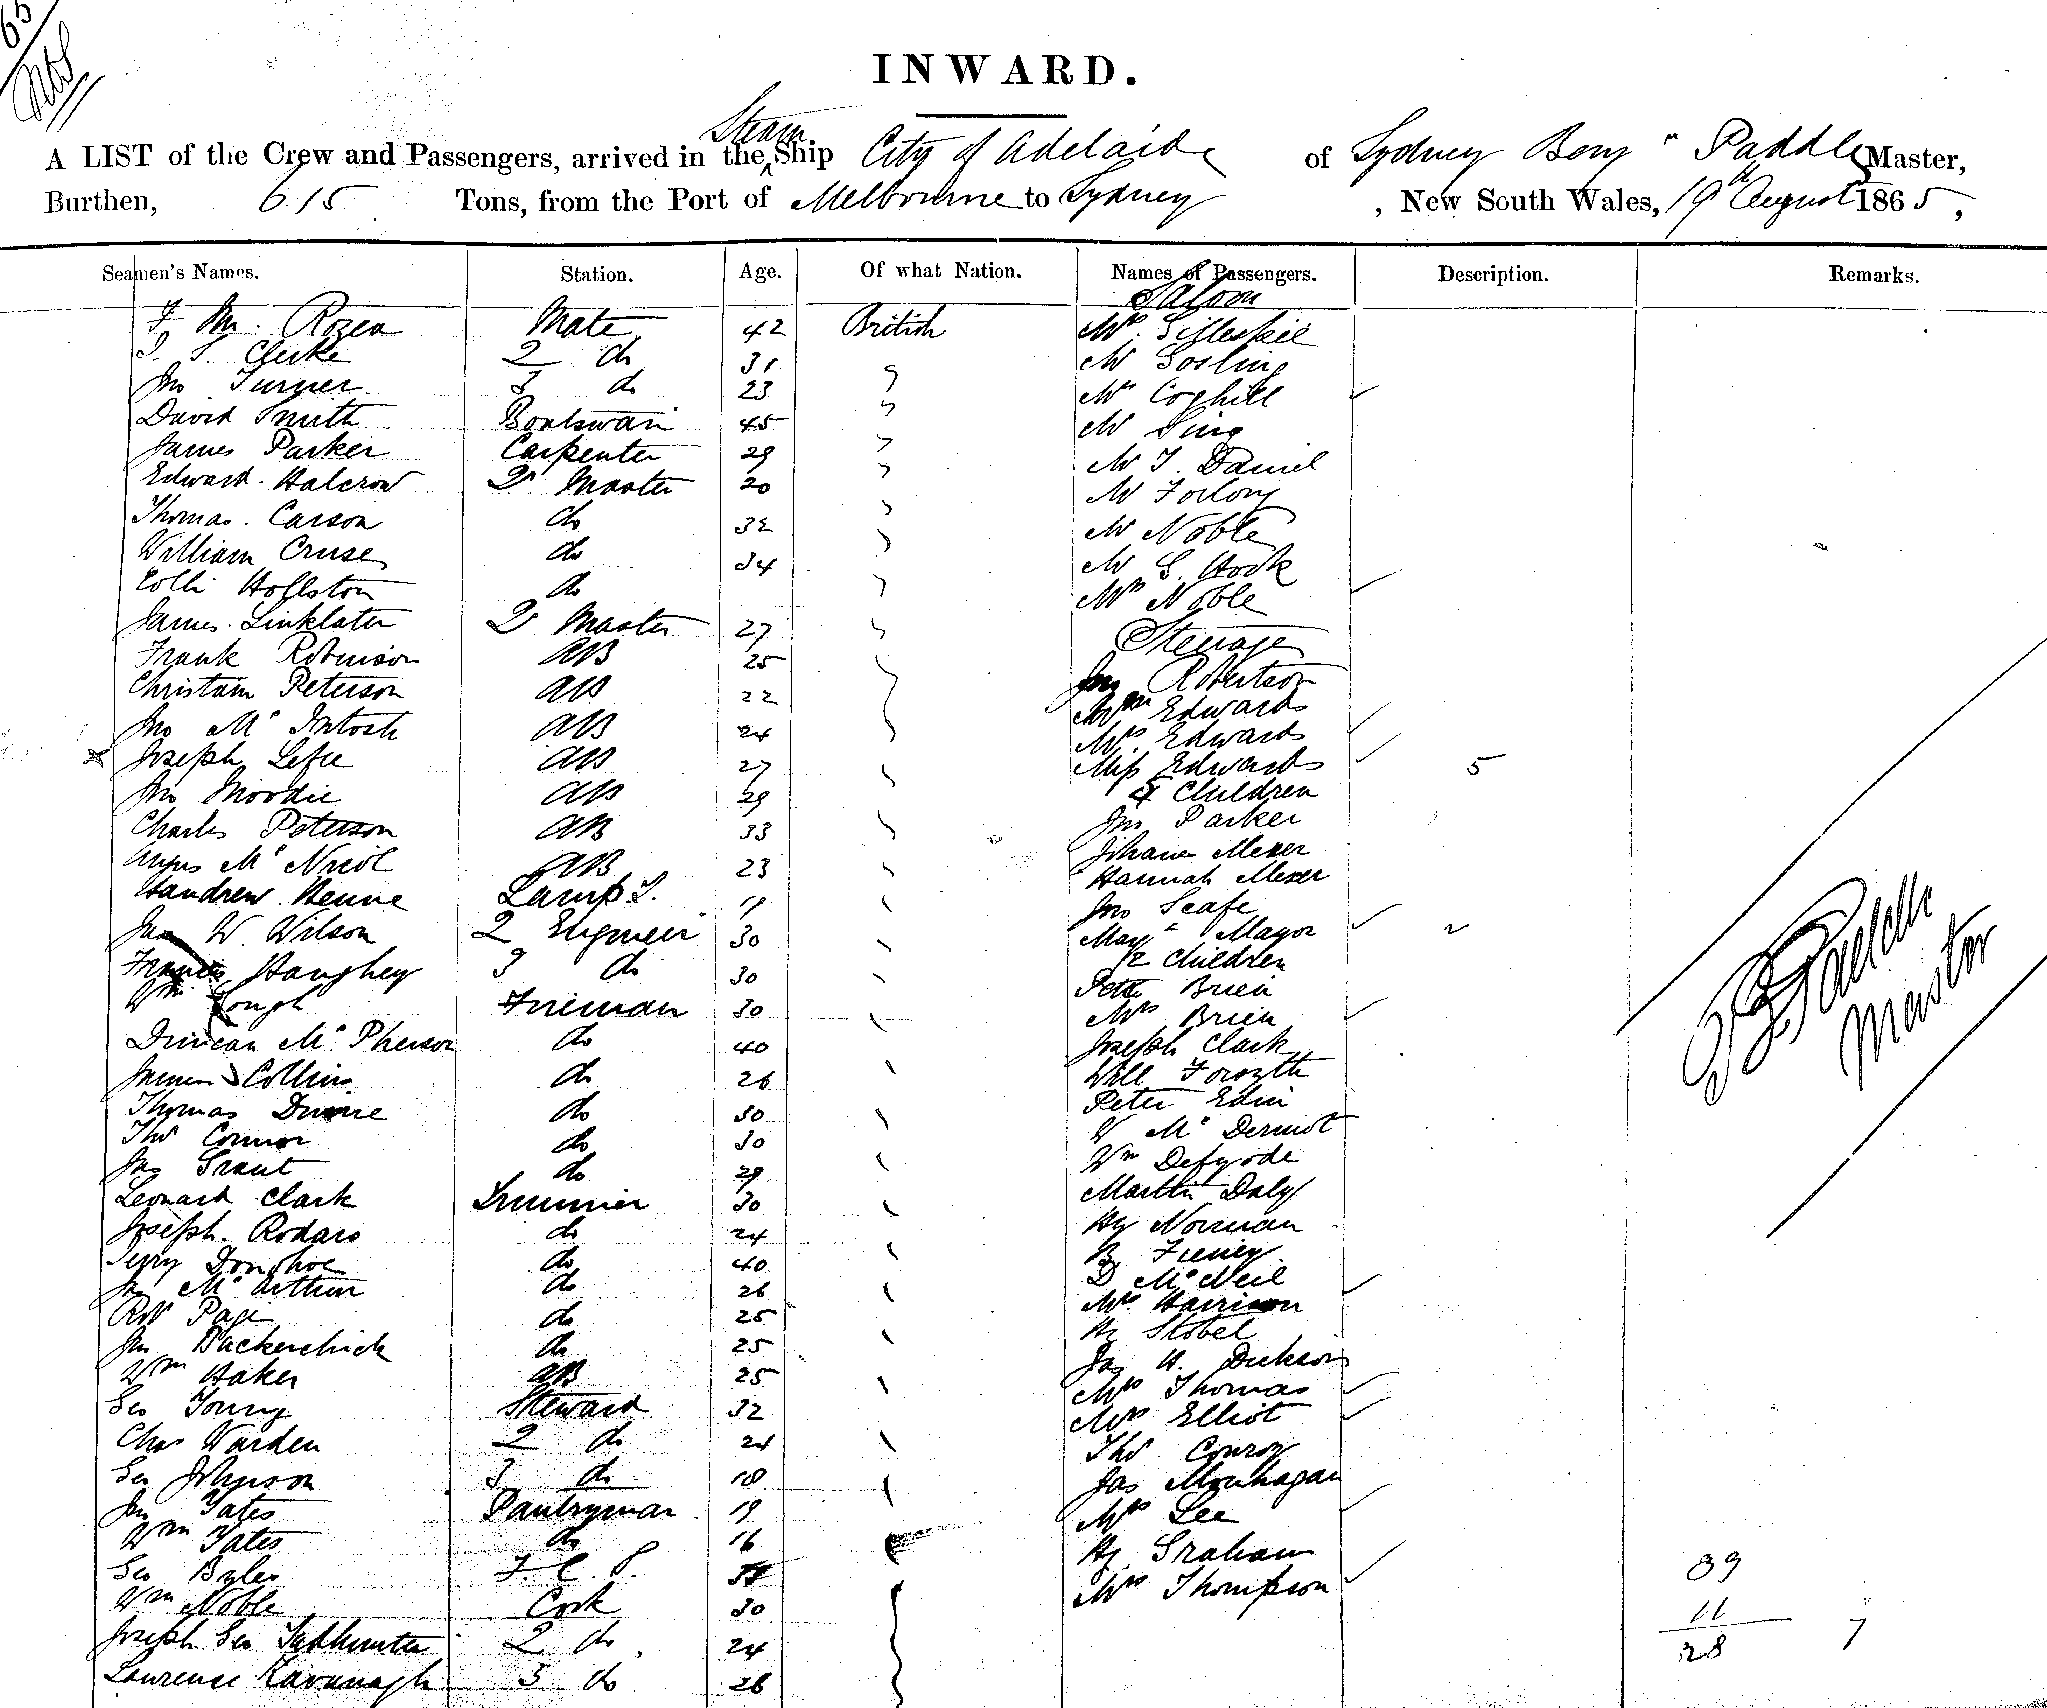 65
INWARD.
A LIST of the Crew and Passengers, arrived in the Steam Ship City of Adelaide of Sydney Benj Paddle Master,
Burthen, 615 Tons, from the Port of Melbourne to Sydney, New South Wales, 19th August 1865,
Seamen's Names. Station. Age. Of what Nation. Names of Passengers. Description. Remarks.
Saloon
Mate 42 British Mrs Gilleskie
Clerke 2 do 31 Mr Gosling
Jno Turner 3 do 23 Mrs Coghill
David Smith Boatswain 45 Mr Sing
James Parker Carpenter 29 Mr J. Daniel
Edward Halcrow Qr Master 20 Mr Forlong
Thomas Carson do 32 Mr Noble
William Cruse do 34 Mr G. Hook
Hollston do Mrs Noble
James Linklater Qr Master 27 Steerage
Frank Robinson AB 25 Jno Robertson
Christain Peterson AB 22 Wm Edwards
Jno Mc Intosh AB 24 Mrs Edwards
Joseph Lefee AB 27 Miss Edwards 5
Jno Moodie AB 29 Children
Charles Peterson AB 33 Jno Parker
Angus Mc Nicol AB 23 Mexer
Handrew Henne Lamp T. 19 Hannah Mexer
Jno W. Wilson 2 Engineer 30 Jno Scafe
Francis Haughey 3 do 30 Mary Mayor 2
Wm Gough Fireman 30 2 Children
Duncan Mc Pherson do 40 Peter Brien
James Collins do 26 Mrs Brien
Thomas Divine do 30 Joseph Clark
Thos Connor do 30 Will Forsyth
Jas Grant do 29 Peter Edin
Leonard Clark Trimmer 30 W Mc Dermot
Joseph Rodaro do 24 Wm Defyode
Donohoe do 40 Martin Daly
Jno Mc Arthur do 26 Hy Norman
Robt Page do 25 B. Fieney
Jno do 25 D McNeil
Wm Haker AB 25 Mrs Harrison
Geo Young Steward 32 Hy Stobel
Chas Varden 2 do 24 Jas H. Dickson
Geo Johnson 3 do 18 Mrs Thomas
Jno Yates Pantryman 19 Mrs Elliot
Wm Yates do 16 Thos Conroy
Geo Byles F. C. S. Jas Monhagan
Wm Noble Cook 30 Mrs Lee
Joseph Geo Tadhunter 2 do 24 Hy Graham
Lawrence Kavanagh 3 do 26 Mrs Thompson
Paddle
Master
39
11
28 7